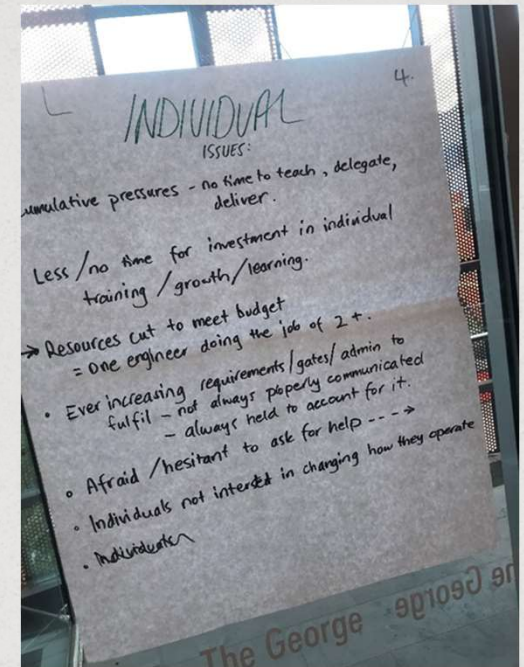 4.
INDIVIDUAL
ISSUES:
umulative pressures - no time to teach, delegate,
deliver.
Less/no time for investment in individual
training/growth/learning.
→ Resources cut to meet budget
= One engineer doing the job of 2+.
• Ever increasing requirements/gates/admin to
fulfil - not always properly communicated
- always held to account for it.
• Afraid/hesitant to ask for help ---→
• Individuals not intersted in changing how they operate
• Individuals
The George
The George